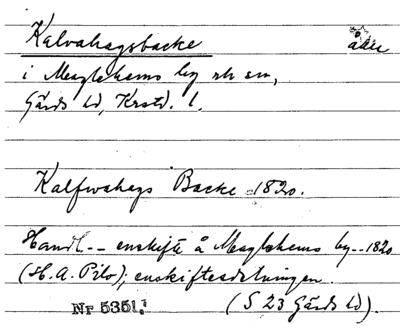 Kalvahagsbacke åker
i Maglehems by ok sn,
Gärds hd, Krstd. l.
Kalfwahags Backe 1820.
Handl. -- enskifte å Maglehems by -- 1820
(H. A. Pilo), enskiftesdelningen.
Nr 5351. (S 23 Gärds hd).